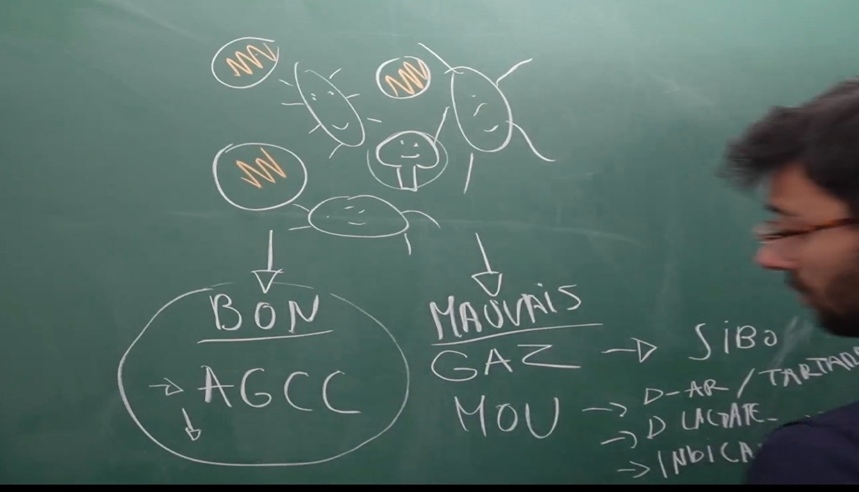 BON
→ AGCC
MAUVAIS
GAZ → SiBO
MOU → D-AR / TARTA
→ D LACTATE
→ INDICA